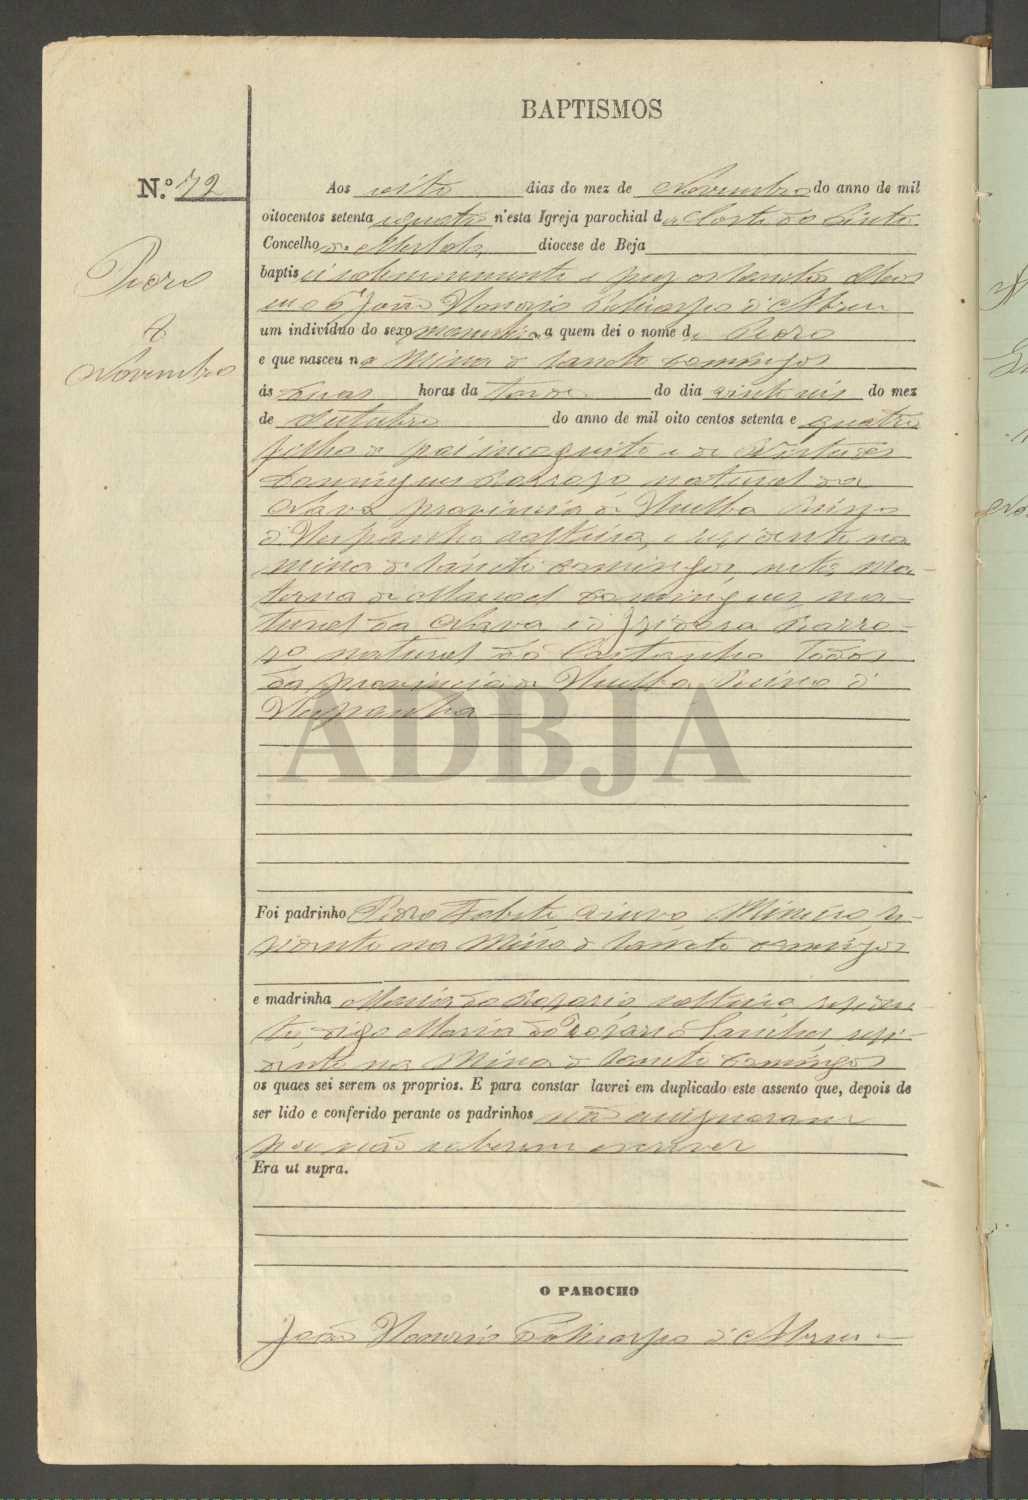 BAPTISMOS
N.º 72
Pedro
8
Novembro
Aos oito dias do mez de Novembro do anno de mil
oitocentos setenta e quatro n'esta Igreja parochial de Corte do Pinto
Concelho de Mertola, diocese de Beja
baptisei solemnemente e puz os Sanctos Oleos
eu o Pe João Honorio Policarpo d'Abreu
um individuo do sexo masculino a quem dei o nome de Pedro
e que nasceu na Mina de Sancto Domingos
ás duas horas da tarde do dia vinte seis do mez
de Outubro do anno de mil oito centos setenta e quatro
filho de pai incognito e de
Domingues Barrozo natural da
Nava provincia de Huelba Reino
d'Hespanha solteira, e rezidente na
mina de Sancto Domingos, neto ma-
terno de Manoel Domingues na-
tural da Nava e d'Izidora Barro-
zo natural do Castanho todos
da provincia de Huelba Reino d'
Hespanha
ADBJA
Foi padrinho Pedro viuvo Mineiro re-
zidente na Mina de Sancto Domingos
e madrinha Maria do Rozario solteira reziden
te, digo Maria do Rozario Sanches rezi-
dente na Mina de Sancto Domingos
os quaes sei serem os proprios. E para constar lavrei em duplicado este assento que, depois de
ser lido e conferido perante os padrinhos não assignaram
por não saberem escrever
Era ut supra.
O PAROCHO
João Honorio Policarpo d'Abreu